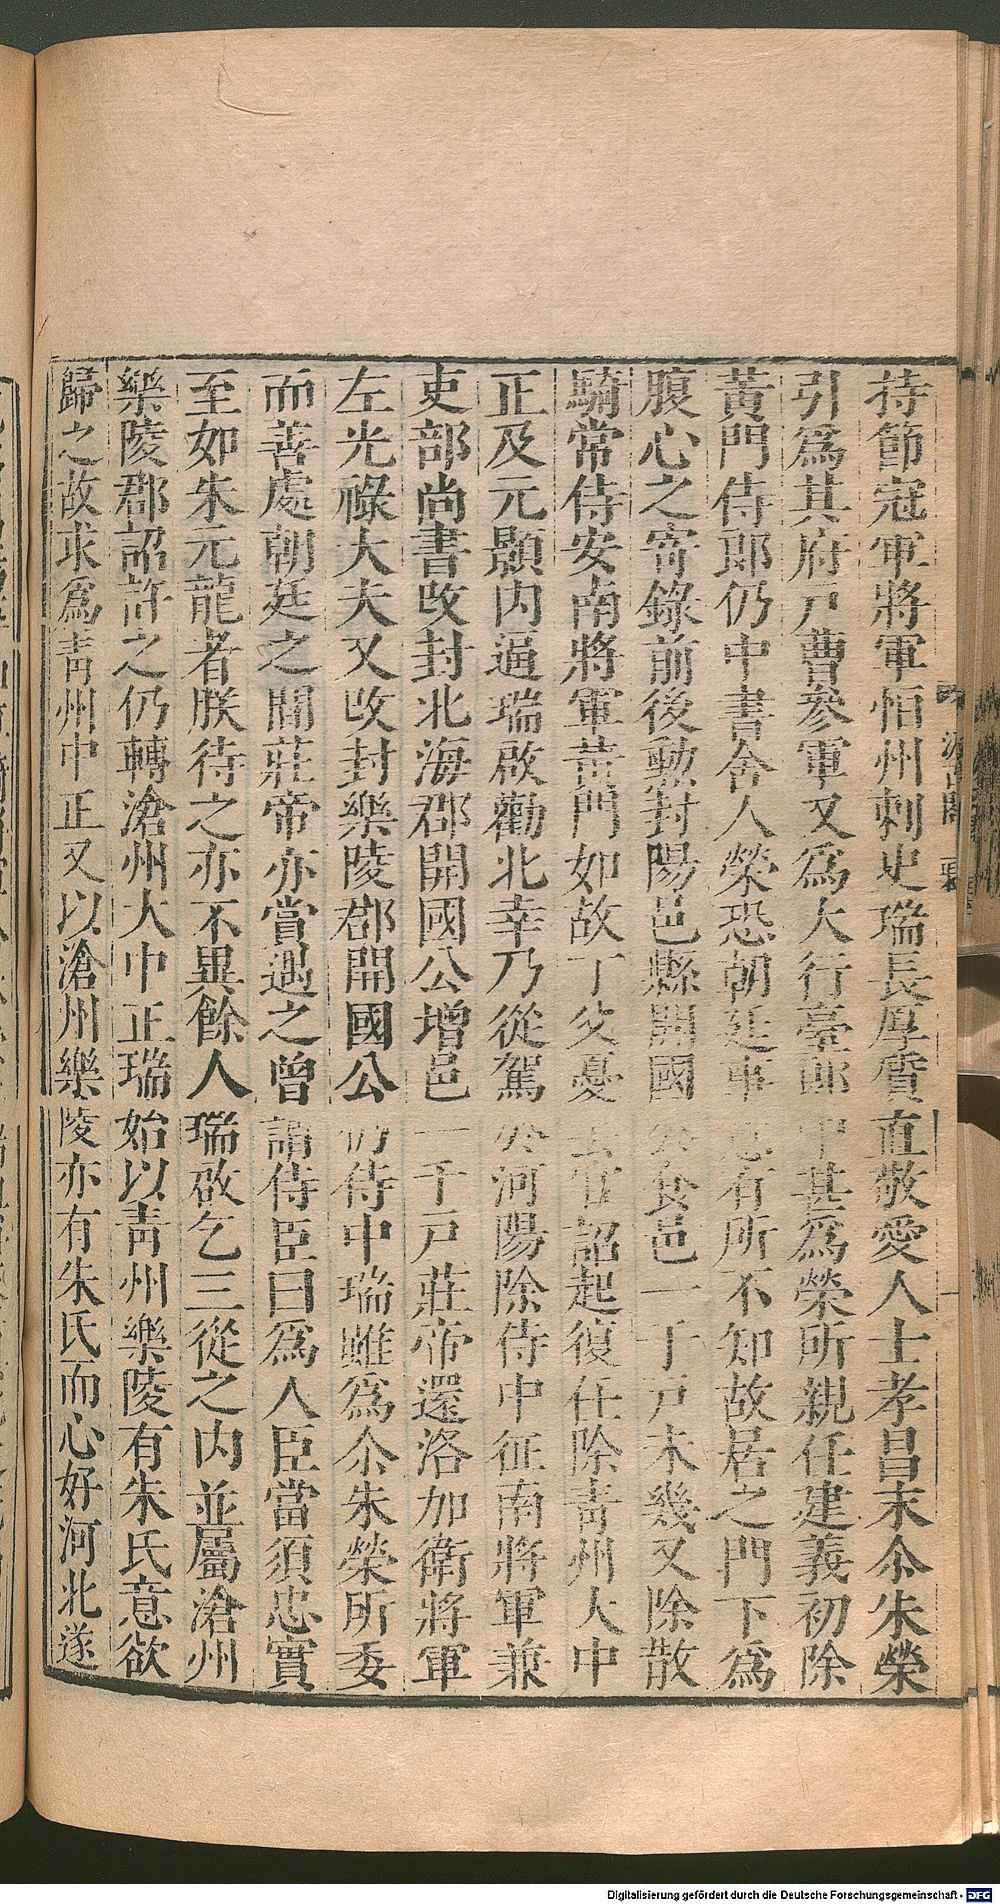 持節冠軍將軍恒州刺史瑞長厚質直敬愛人士孝昌末尒朱榮
引爲其府戸曹參軍又爲大行臺郎中甚爲榮所親任建義初除
黃門侍郎仍中書舍人榮恐朝廷事有所不知故居之門下爲
腹心之寄錄前後勲封陽邑縣開國公食邑一千戸未幾又除散
騎常侍安南將軍黃門如故丁父憂去官詔起復任除靑州大中
正及元顥内逼瑞啟勸北幸乃從駕於河陽除侍中征南將軍兼
吏部尚書改封北海郡開國公增邑一千戸莊帝還洛加衛將軍
左光祿大夫又改封樂陵郡開國公仍侍中瑞雖爲尒朱榮所委
而善處朝廷之間莊帝亦賞遇之曾謂侍臣曰爲人臣當須忠實
至如朱元龍者朕待之亦不異餘人瑞啟乞三從之内並屬滄州
樂陵郡詔許之仍轉滄州大中正瑞始以靑州樂陵有朱氏意欲
歸之故求爲靑州中正又以滄州樂陵亦有朱氏而心好河北遂
Digitalisierung gefördert durch die Deutsche Forschungsgemeinschaft - DFG